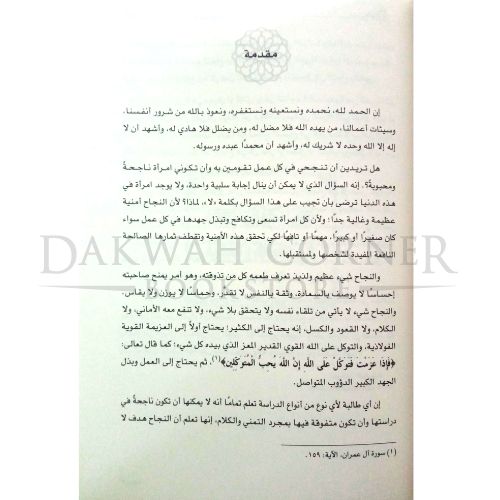 مقدمة
إن الحمد لله، نحمده ونستعينه ونستغفره، ونعوذ بالله من شرور أنفسنا،
وسيئات أعمالنا، من يهده الله فلا مضل له، ومن يضلل فلا هادي له، وأشهد أن لا
إله إلا الله وحده لا شريك له، وأشهد أن محمدًا عبده ورسوله.
هل تريدين أن تنجحي في كل عمل تقومين به وأن تكوني امرأة ناجحةً
ومحبوبةً؟. إنه السؤال الذي لا يمكن أن ينال إجابة سلبية واحدة، ولا يوجد امرأة في
هذه الدنيا ترضى بأن تجيب على هذا السؤال بكلمة «لا»، لماذا؟ لأن النجاح أمنية
عظيمة وغالية جدًا؛ ولأن كل امرأة تسعى وتكافح وتبذل جهدها في كل عمل سواء
كان صغيرًا أو كبيرًا، مهمًا أو تافهًا لكي تحقق هذه الأمنية وتقطف ثمارها الصالحة
النافعة المفيدة لشخصها ولمستقبلها.
DAKWAH CORNER
BOOKSTORE
والنجاح شيء عظيم ولذيذ يعرف طعمه كل من تذوقته، وهو أمر يمنح صاحبته
إحساسًا لا يوصف بالسعادة، وثقة بالنفس لا تقدر، وحماسًا لا يوزن ولا يقاس.
والنجاح شيء لا يأتي من تلقاء نفسه ولا يتحقق بلا شيء، ولا تنفع معه الأماني، ولا
الكلام، ولا القعود والكسل، إنه يحتاج إلى الكثير؛ يحتاج أولاً إلى العزيمة القوية
الفولاذية، والتوكل على الله القوي القدير المعز الذي بيده كل شيء؛ كما قال تعالى:
﴿فَإِذَا عَزَمْتَ فَتَوَكَّلْ عَلَى اللَّهِ إِنَّ اللَّهَ يُحِبُّ الْمُتَوَكِّلِينَ﴾(١)، ثم يحتاج إلى العمل وبذل
الجهد الكبير الدؤوب المتواصل.
إن أي طالبة لأي نوع من أنواع الدراسة تعلم تمامًا أنه لا يمكنها أن تكون ناجحةً في
دراستها وأن تكون متفوقة فيها بمجرد التمني والكلام، إنها تعلم أن النجاح هدف لا
(١) سورة آل عمران، الآية: ١٥٩.